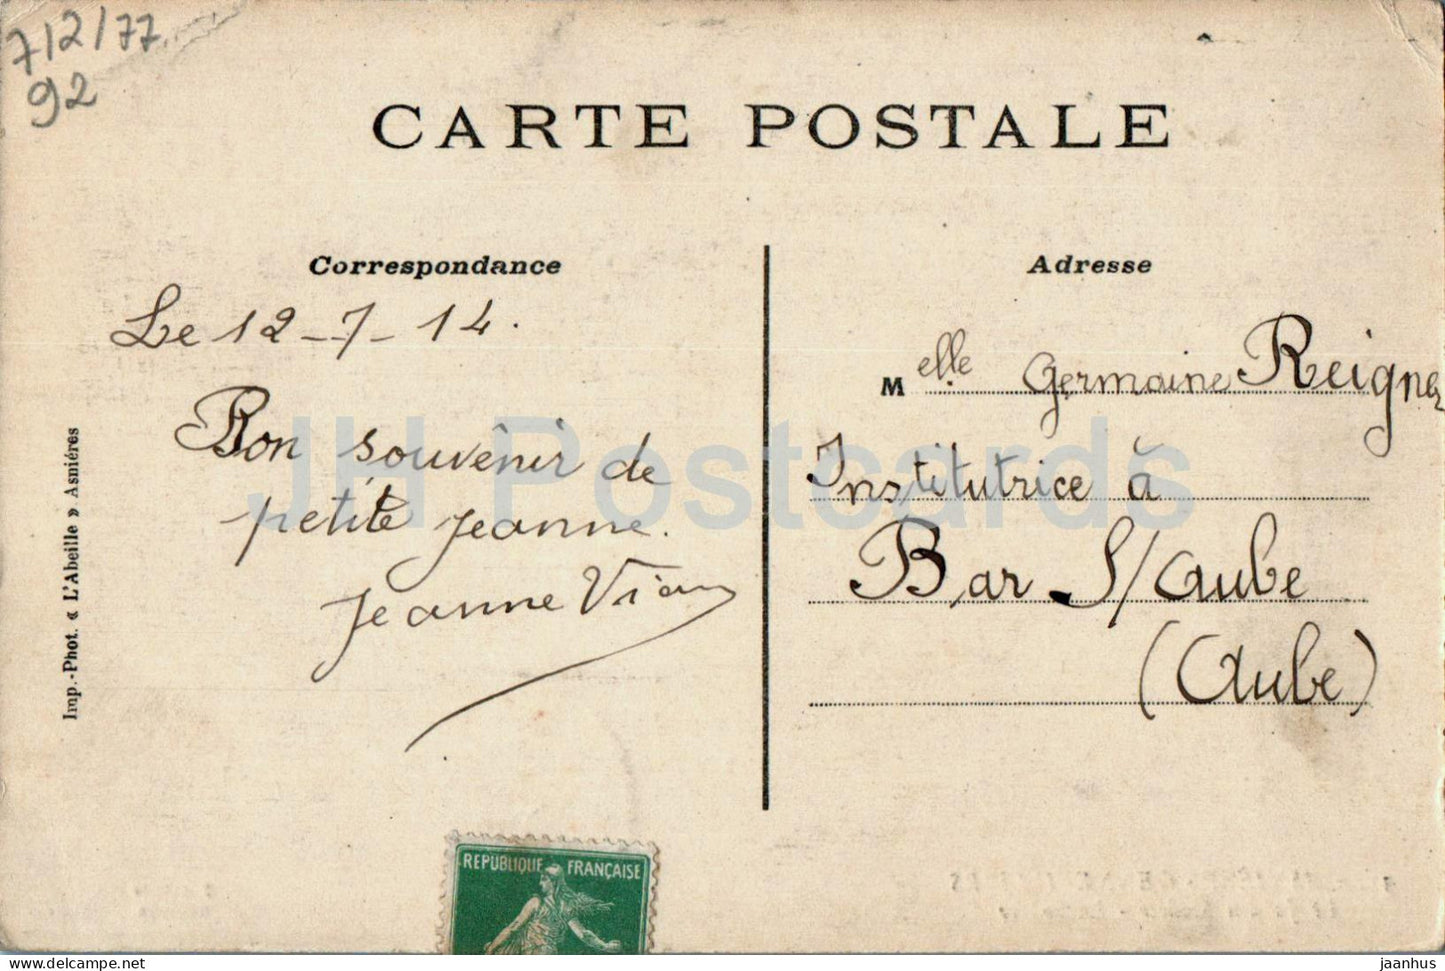 712/77
92
CARTE POSTALE
Correspondance
Le 12-7-14.
Bon souvenir de
petite Jeanne.
Jeanne Vian
Adresse
Melle Germaine
Institutrice à
Bar S/ Aube
(Aube)
Imp.-Phot. « L'Abeille » Asnières
REPUBLIQUE FRANÇAISE
JH Postcards
www.delcampe.net
jaanhus